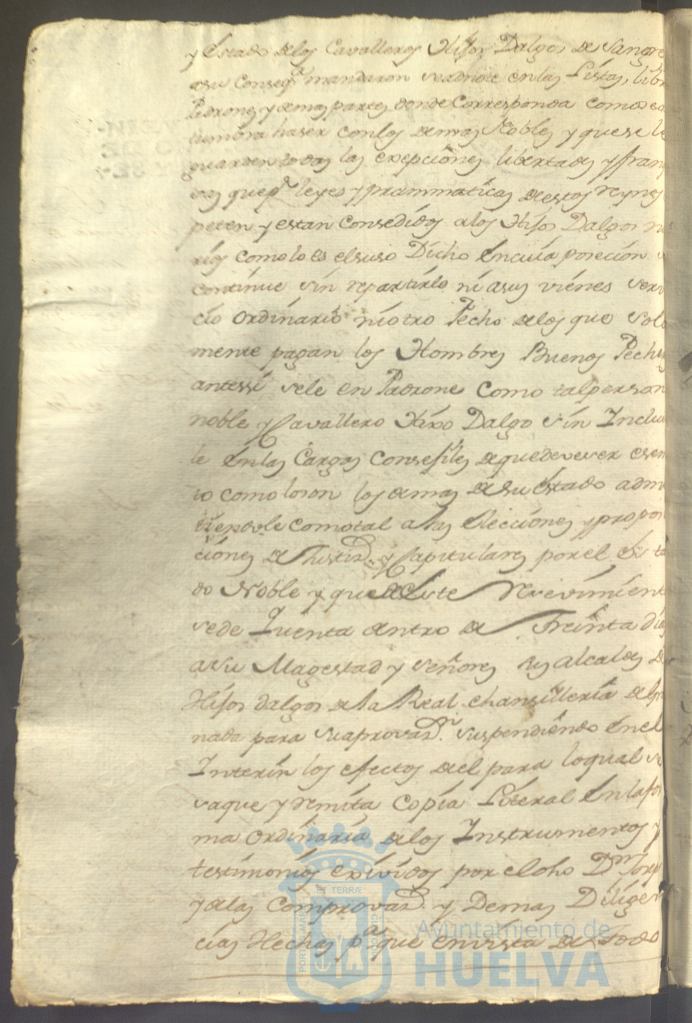 y estado de los Cavalleros Hijos Dalgos de Sangre
asu Conseqª mandaron se anote en las Listas, libr
Padrones y demas partes donde Corresponda como se a
tumbra haser con los demas Nobles y que se le
guarden todas las exepciones libertades y fran
as que pʳ leyes y prammaticas de estos reynos
peten y estan Consedidos a los Hijos Dalgos no
rios como lo es el suso Dicho en cuia posecion
continue sin repartirlo ni a sus vienes servi
cio ordinario ni otro Pecho de los que sola
mente pagan los Hombres Buenos Peche
antes si se le en Padrone Como tal person
noble y Cavallero Hixo Dalgo sin Inclui
le en las Cargas Consejiles de que deve ser esen
to como lo son los demas de su Estado admi
tiendole como tal a las Elecciones y propo
ciones de Justiª y Capitulares por el Esta
do Noble y que de este Resevimient
se de Quenta dentro de Treinta dias
a su Magestad y Señores sus alcaldes de
Hijos dalgos de la Real chansilleria de Gra
nada para su aprovaᵒⁿ suspendiendo en el
Interin los efectos del para lo qual s
saque y remita Copia Literal en la for
ma Ordinaria de los Instrumentos y
testimonios exividos por el dho Dⁿ Josep
y de las Comprovaᵒⁿ y Demas Diligen
cias Hechas pª que en vista de Todo
PORTUS TERRAE
Ayuntamiento de
HUELVA